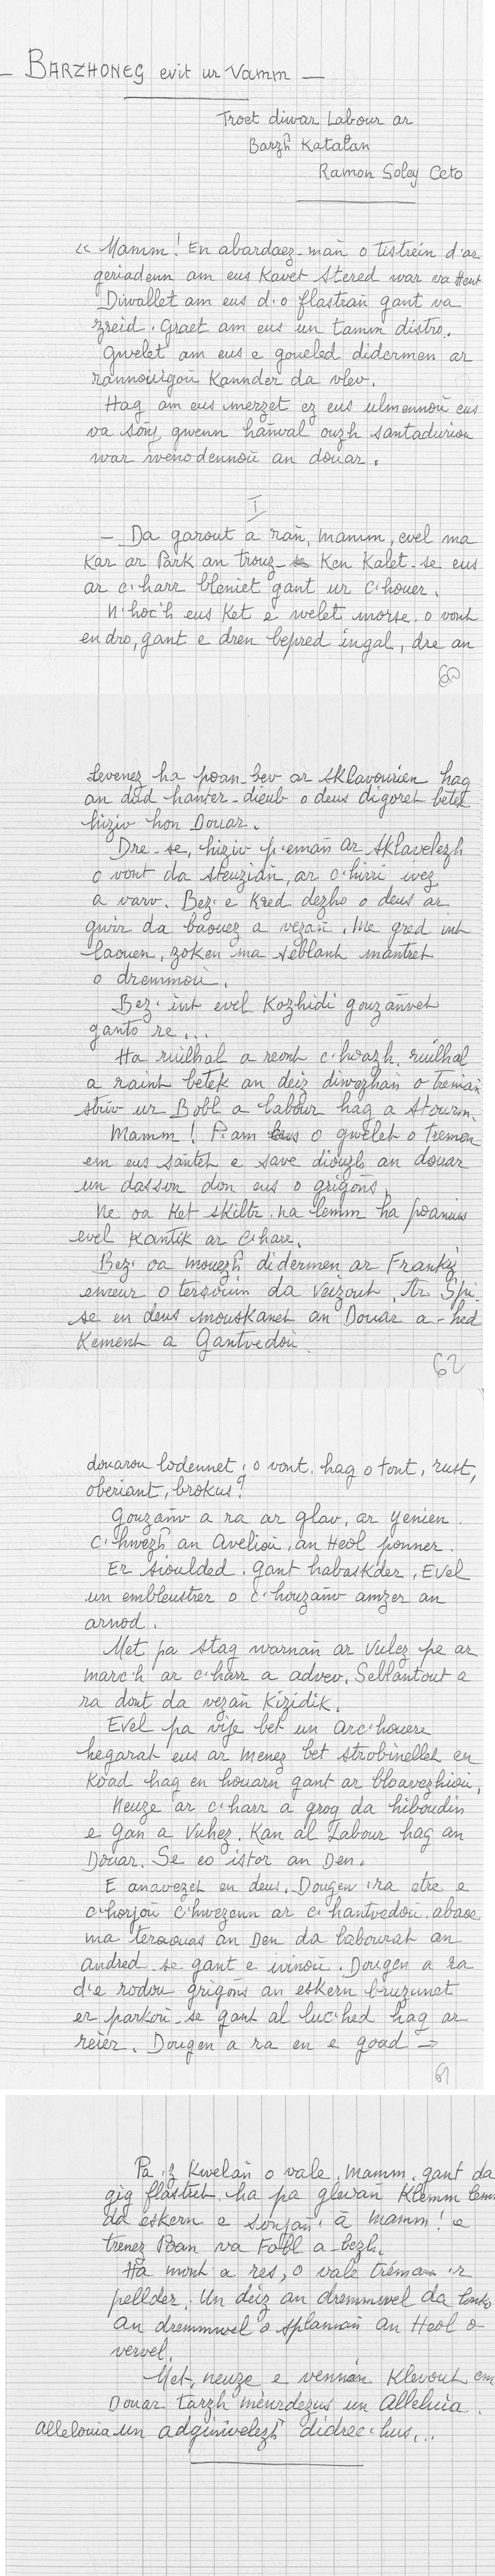 — BARZHONEG evit ur Vamm —
Troet diwar Labour ar
Barzh Katalan
Ramon Soley Ceto
« Mamm! En abardaez-mañ o tistreiñ d'ar
geriadenn am eus Kavet stered war va Hent
Diwallet am eus d'o flastrañ gant va
zreid. Graet am eus un tamm distro.
Gwelet am eus e goueled didermen ar
rannouigoù Kannder da vlev.
Hag am eus merzet ez eus ulmennoù eus
va soñj gwenn hañval ouzh santadurioù
war wenodennoù an douar.
I
— Da garout a ran, mamm, evel ma
Kar ar Park an trouz- Ken Kalet-se eus
ar c'harr bleniet gant ur C'houer.
N'hoc'h eus Ket e welet morse o vont
en dro, gant e dren bepred ingal, dre an
60
levenez ha poan-bev ar sklavourien hag
an dud hanter-dieub o deus digoret betek
hiziv hon Douar.
Dre-se, hiziv p'emañ ar sklavelezh
o vont da steuziañ, ar c'hirri ivez
a varv. Bez' e Kred dezho o deus ar
gwir da baouez a vezañ. Me gred int
laouen, zoken ma seblant mantret
o dremmoù.
Bez' int evel Kozhidi gouzañvet
ganto re...
Ha ruilhal a reont c'hoazh, ruilhal
a raint betek an deiz diwezhañ o tremen
striv ur Bobl a labour hag a stourm.
Mamm! P'am o gwelet o tremen
em eus santet e save diouzh an douar
un dasson don eus o grigoñs.
Ne oa Ket skiltr na lemm ha poanius
evel Kantik ar C'harr.
Bez' oa mouezh didermen ar Frankiz
emeur o tersouin da Veizout. Ar Spi-
se en deus mouskanet an Douar a-hed
Kement a Gantvedoù.
62
douarou lodennet; o vont, hag o tont, rust,
oberiant, brokus?
Gouzañv a ra ar glav, ar yenien
C'hwezh an Avelioù, an Heol ponner.
Er sioulded, gant habaskder, Evel
un embleustrer o c'houzañv amzer an
arnod.
Met pa stag warnañ ar Vulez pe ar
marc'h ar c'harr a advev. Seblantout a
ra dont da vezañ Kizidik.
Evel pa vije bet un Arc'houere
hegarat eus ar menez bet strobinellet en
Koad hag en houarn gant ar bloavezhioù.
Neuze ar c'harr a grog da hiboudiñ
e gan a Vuhez. Kan al Labour hag an
Douar. Se eo istor an Den.
E anavezet en deus. Dougen 'ra etre e
c'horjoù C'hwezenn ar c'hantvedoù abaoe
ma an Den da labourat an
andred-se gant e ivinoù. Dougen a ra
d'e rodoù grigoñs an eskern bruzunet
er parkoù-se gant al luc'hed hag ar
reier. Dougen a ra en e goad →
61
Pa'z Kwelañ o vale, Mamm, gant da
gig flastret, ha pa glevañ Klemm lemm
da eskern e soñjañ, ã mamm! e
trenez Poan va Fobl a-bezh.
Ha mont a res, o vale trema 'r
pellder. Un deiz an dremmwel da lonko
An dremmwel o splannañ an Heol o
vervel.
Met, neuze, e vennan Klevout em
Douar tarzh meurdezus un Alleluia.
Allelouia un adginivelezh didrec'hus...